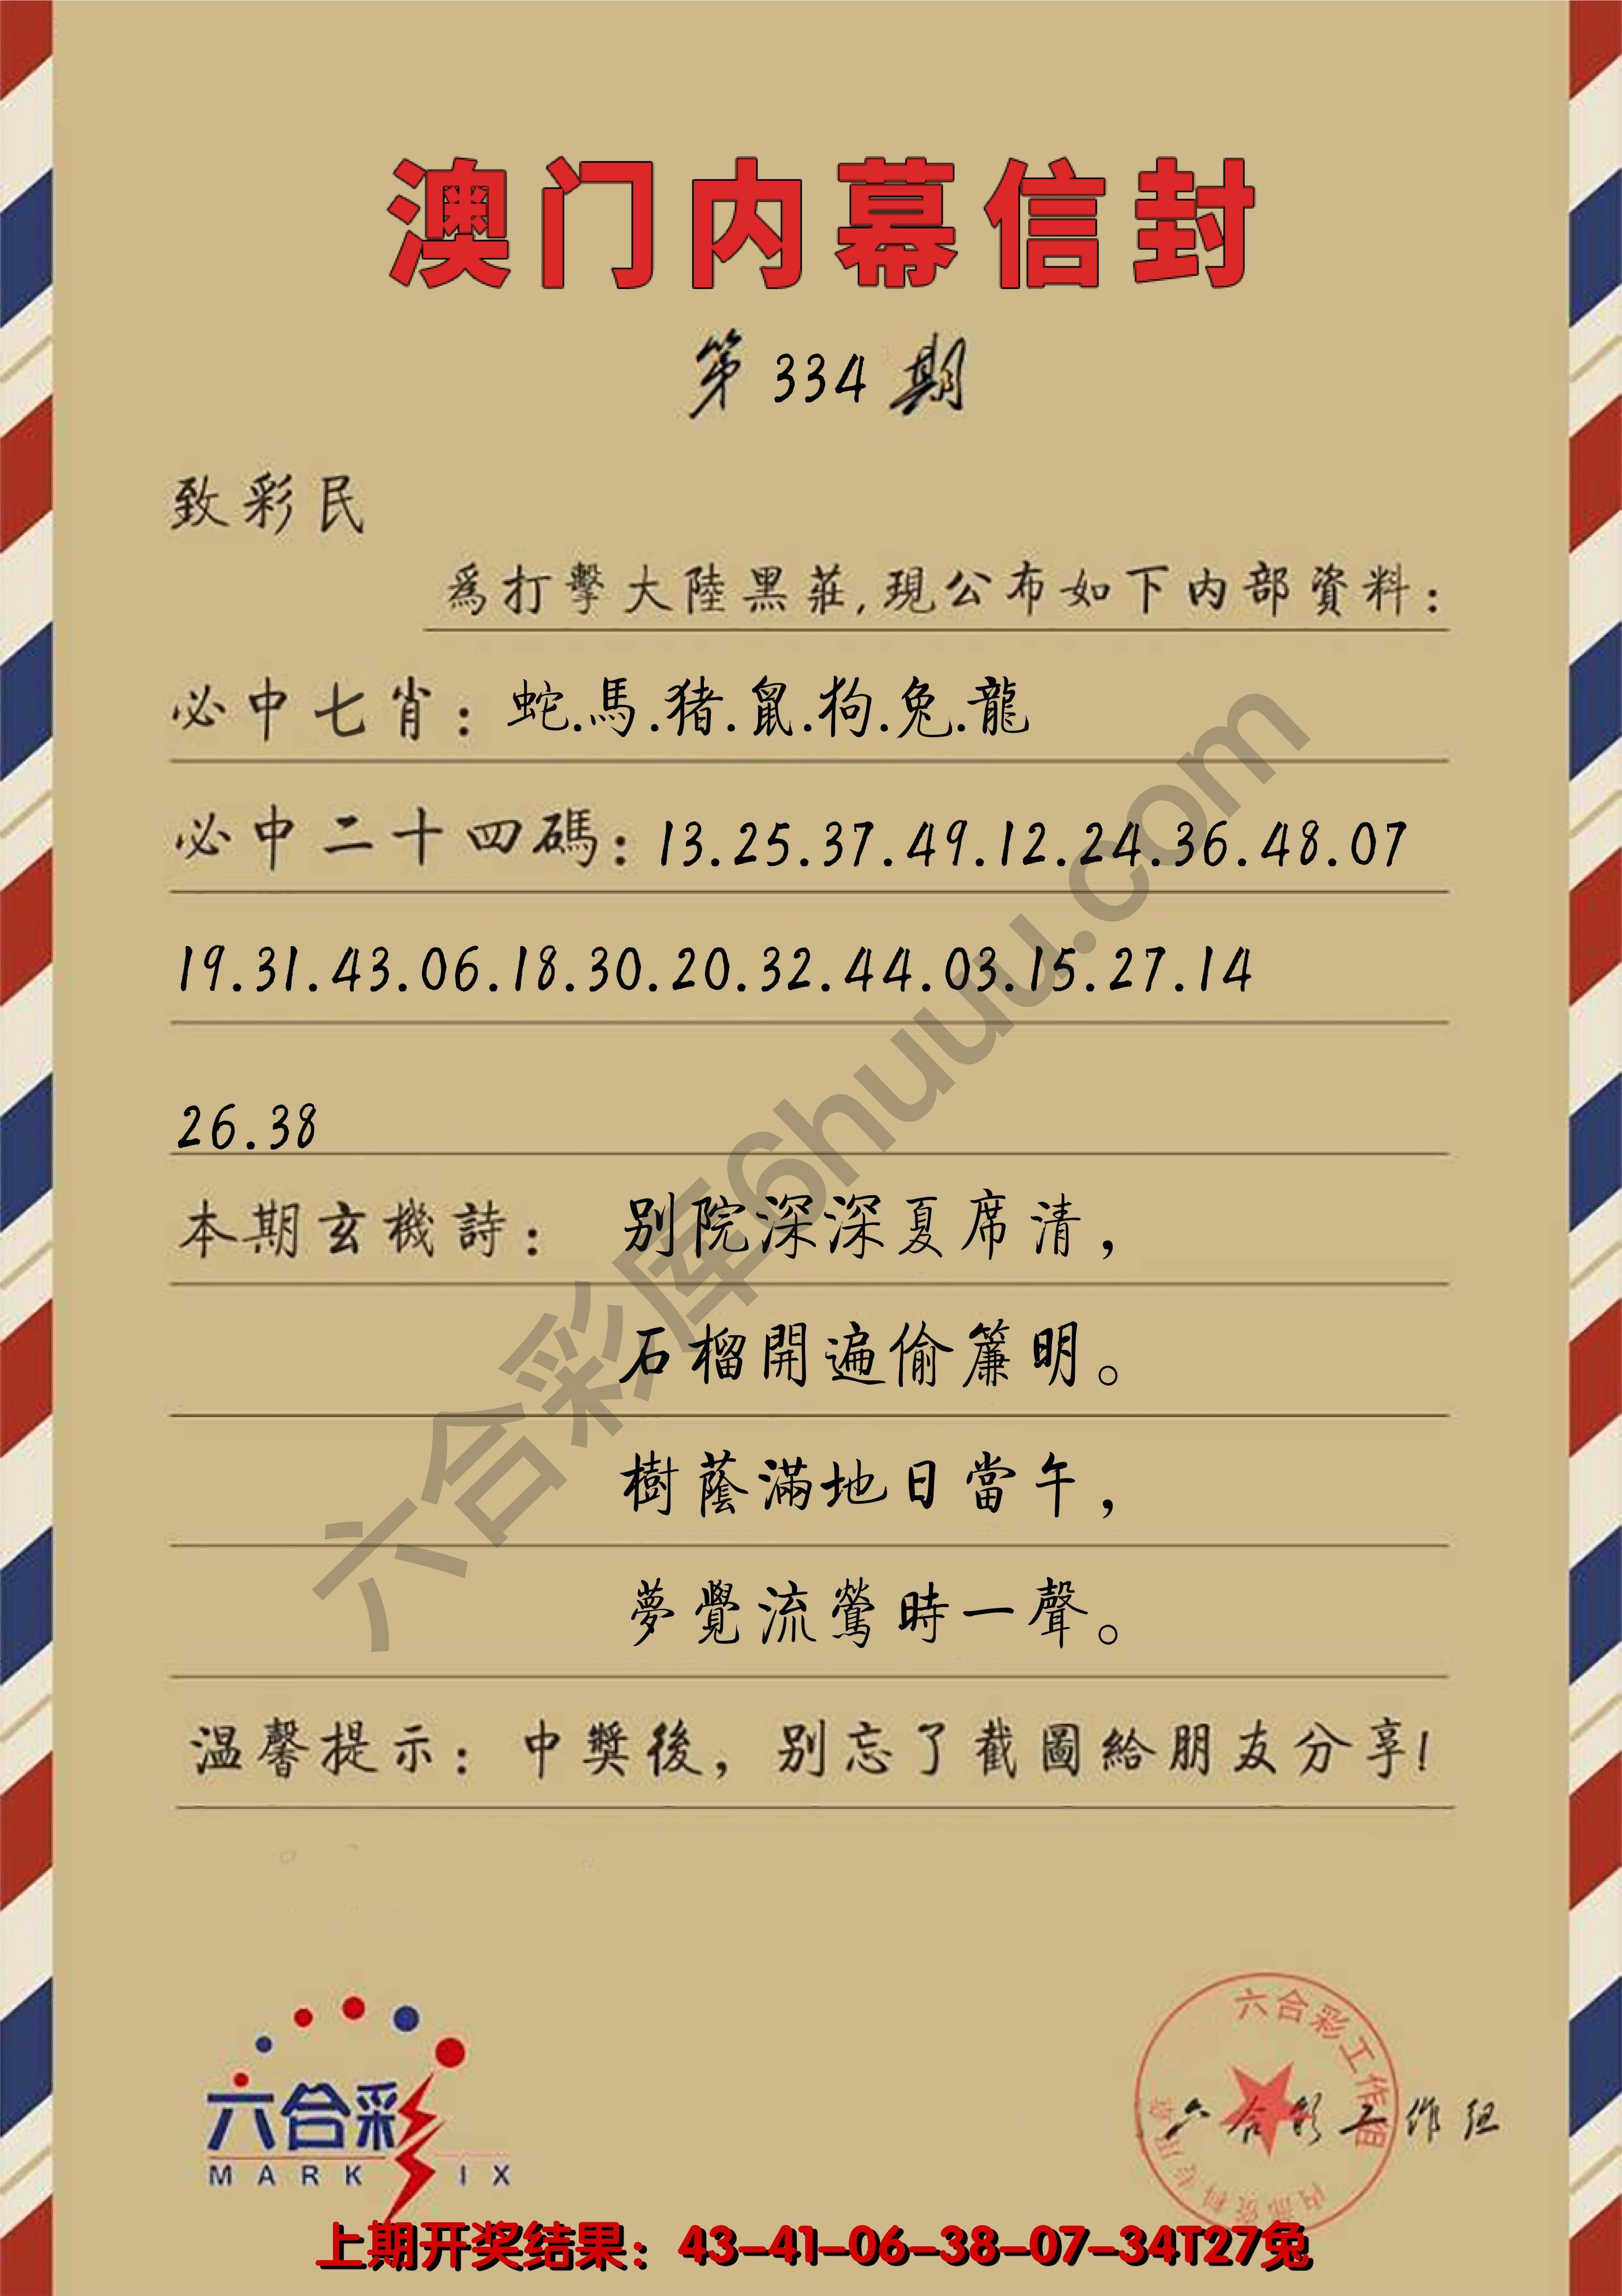 澳门内幕信封
第334期
致彩民
爲打擊大陸黑莊,現公布如下内部資料:
必中七肖:蛇.馬.猪.鼠.狗.兔.龍
必中二十四碼:13.25.37.49.12.24.36.48.07
19.31.43.06.18.30.20.32.44.03.15.27.14
26.38
本期玄機詩: 别院深深夏席清,
石榴開遍偷簾明。
樹蔭滿地日當午,
夢覺流鶯時一聲。
温馨提示:中獎後,别忘了截圖給朋友分享!
六合彩库6huuu.com
六合彩
MARK IX
六合彩工作组
六合彩工作组
内部资料专用章
上期开奖结果:43-41-06-38-07-34T27兔